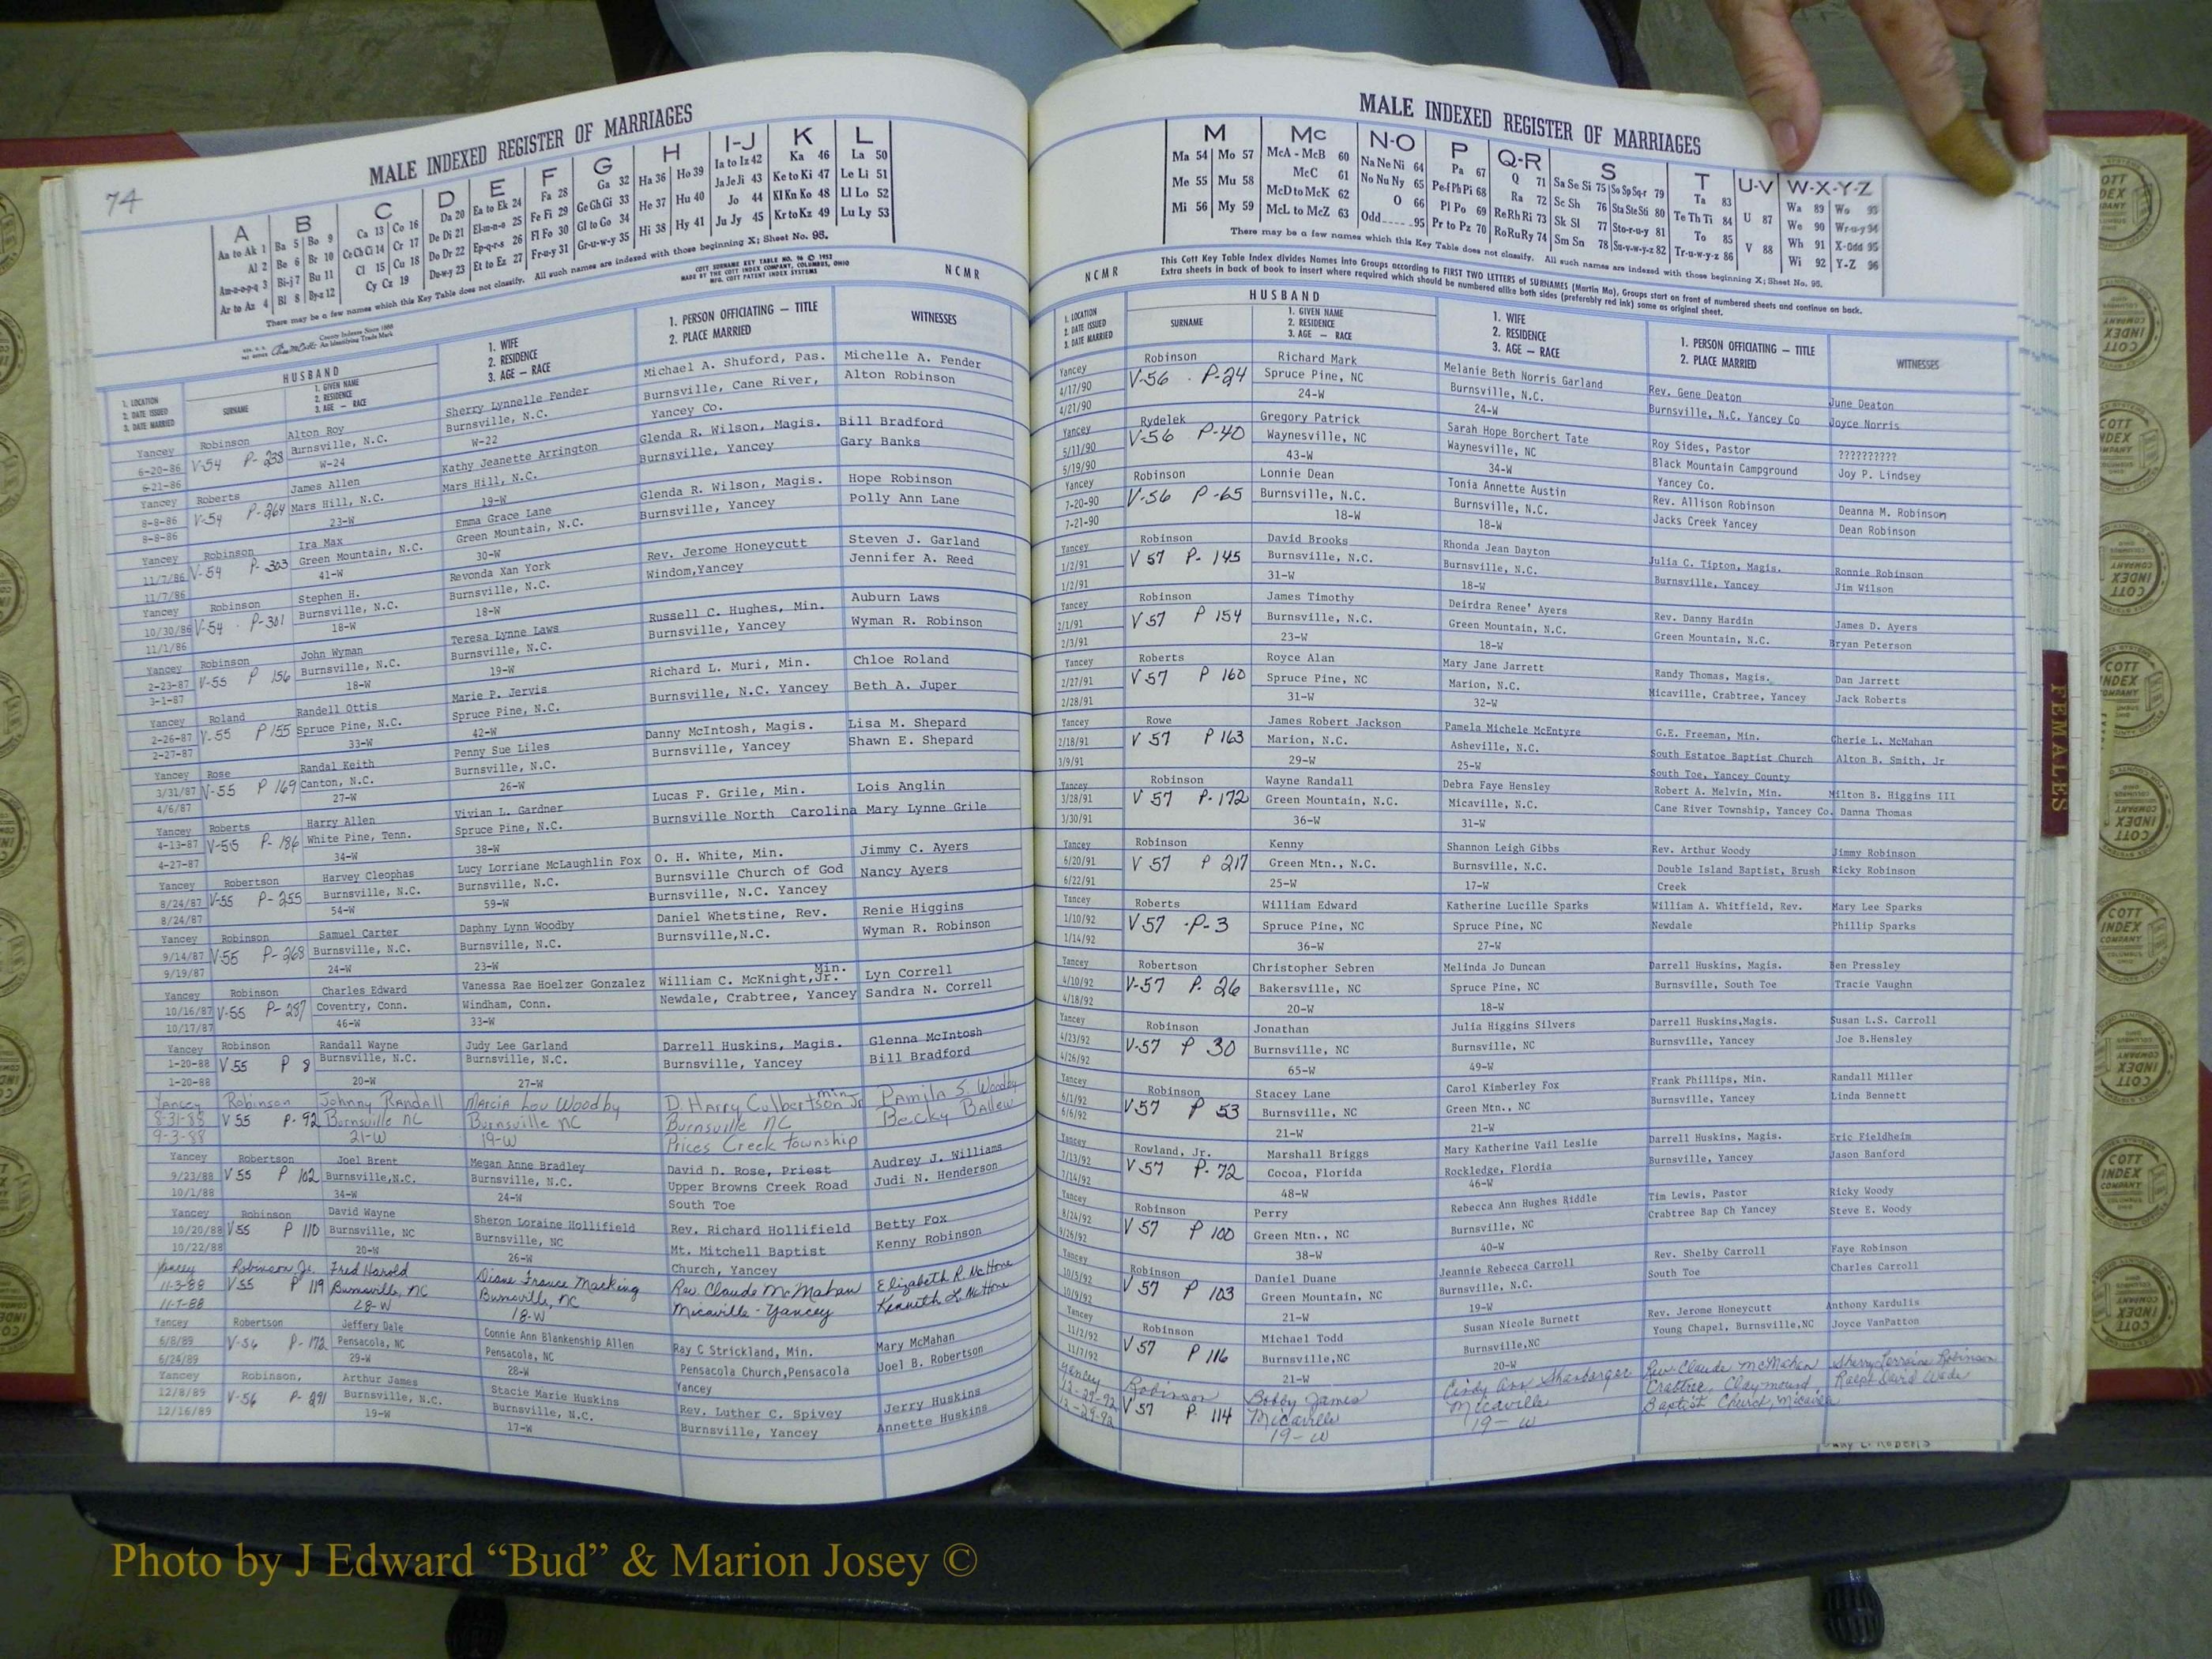 74
MALE INDEXED REGISTER OF MARRIAGES
A B C D E F G H I-J K L
Aa to Ak 1 Ba 5 Bo 9 Ca 13 Co 16 Da 20 Ea to Ek 24 Fa 28 Ga 32 Ha 36 Ho 39 Ia to Iz 42 Ka 46 La 50
Al 2 Be 6 Br 10 Ce Ch Ci 14 Cr 17 De Di 21 El-m-n-o 25 Fe Fi 29 Ge Gh Gi 33 He 37 Hu 40 Ja Je Ji 43 Ke to Ki 47 Le Li 51
Am-n-o-p-q 3 Bi-j 7 Bu 11 Cl 15 Cu 18 Do Dr 22 Ep-q-r-s 26 Fl Fo 30 Gl to Go 34 Hi 38 Hy 41 Jo 44 Kl Kn Ko 48 Ll Lo 52
Ar to Az 4 Bl 8 By-z 12 Cy Cz 19 Du-w-y 23 Et to Ez 27 Fr-u-y 31 Gr-u-w-y 35 Ju Jy 45 Kr to Kz 49 Lu Ly 53
There may be a few names which this Key Table does not classify. All such names are indexed with those beginning X; Sheet No. 95.
COTT SURNAME KEY TABLE NO. 96 © 1952
MADE BY THE COTT INDEX COMPANY, COLUMBUS, OHIO
MFG. COTT PATENT INDEX SYSTEMS
NCMR
County Indexes Since 1888
An Identifying Trade Mark
HUSBAND
1. LOCATION
2. DATE ISSUED
3. DATE MARRIED
SURNAME
1. GIVEN NAME
2. RESIDENCE
3. AGE — RACE
1. WIFE
2. RESIDENCE
3. AGE — RACE
1. PERSON OFFICIATING — TITLE
2. PLACE MARRIED
WITNESSES
Yancey Robinson Alton Roy Sherry Lynnelle Fender Michael A. Shuford, Pas. Michelle A. Fender
6-20-86 V-54 P-238 Burnsville, N.C. Burnsville, N.C. Burnsville, Cane River, Alton Robinson
6-21-86 W-24 W-22 Yancey Co.
Yancey Roberts James Allen Kathy Jeanette Arrington Glenda R. Wilson, Magis. Bill Bradford
8-8-86 V-54 P-264 Mars Hill, N.C. Mars Hill, N.C. Burnsville, Yancey Gary Banks
8-8-86 23-W 19-W
Yancey Robinson Ira Max Emma Grace Lane Glenda R. Wilson, Magis. Hope Robinson
11/7/86 V-54 P-303 Green Mountain, N.C. Green Mountain, N.C. Burnsville, Yancey Polly Ann Lane
11/7/86 41-W 30-W
Yancey Robinson Stephen H. Revonda Xan York Rev. Jerome Honeycutt Steven J. Garland
10/30/86 V-54 P-301 Burnsville, N.C. Burnsville, N.C. Windom,Yancey Jennifer A. Reed
11/1/86 18-W 18-W
Yancey Robinson John Wyman Teresa Lynne Laws Russell C. Hughes, Min. Auburn Laws
2-23-87 V-55 P 156 Burnsville, N.C. Burnsville, N.C. Burnsville, Yancey Wyman R. Robinson
3-1-87 18-W 19-W
Yancey Roland Randell Ottis Marie P. Jervis Richard L. Muri, Min. Chloe Roland
2-26-87 V-55 P 155 Spruce Pine, N.C. Spruce Pine, N.C. Burnsville, N.C. Yancey Beth A. Juper
2-27-87 33-W 42-W
Yancey Rose Randal Keith Penny Sue Liles Danny McIntosh, Magis. Lisa M. Shepard
3/31/87 V-55 P 169 Canton, N.C. Burnsville, N.C. Burnsville, Yancey Shawn E. Shepard
4/6/87 27-W 26-W
Yancey Roberts Harry Allen Vivian L. Gardner Lucas F. Grile, Min. Lois Anglin
4-13-87 V-55 P-186 White Pine, Tenn. Spruce Pine, N.C. Burnsville North Carolina Mary Lynne Grile
4-27-87 34-W 38-W
Yancey Robertson Harvey Cleophas Lucy Lorriane McLaughlin Fox O. H. White, Min. Jimmy C. Ayers
8/24/87 V-55 P-255 Burnsville, N.C. Burnsville, N.C. Burnsville Church of God Nancy Ayers
8/24/87 54-W 59-W Burnsville, N.C. Yancey
Yancey Robinson Samuel Carter Daphny Lynn Woodby Daniel Whetstine, Rev. Renie Higgins
9/14/87 V-55 P-268 Burnsville, N.C. Burnsville, N.C. Burnsville,N.C. Wyman R. Robinson
9/19/87 24-W 23-W
Yancey Robinson Charles Edward Vanessa Rae Hoelzer Gonzalez William C. McKnight,Jr. Min. Lyn Correll
10/16/87 V-55 P-287 Coventry, Conn. Windham, Conn. Newdale, Crabtree, Yancey Sandra N. Correll
10/17/87 46-W 33-W
Yancey Robinson Randall Wayne Judy Lee Garland Darrell Huskins, Magis. Glenna McIntosh
1-20-88 V 55 P 8 Burnsville, N.C. Burnsville, N.C. Burnsville, Yancey Bill Bradford
1-20-88 20-W 27-W
Yancey Robinson Johnny Randall Marcia Lou Woodby D. Harry Culbertson Jr min. Pamila S. Woodby
8-31-88 V 55 P-92 Burnsville NC Burnsville NC Burnsville NC Becky Ballew
9-3-88 21-W 19-W Prices Creek township
Yancey Robertson Joel Brent Megan Anne Bradley David D. Rose, Priest Audrey J. Williams
9/23/88 V 55 P 102 Burnsville,N.C. Burnsville, N.C. Upper Browns Creek Road Judi N. Henderson
10/1/88 34-W 24-W South Toe
Yancey Robinson David Wayne Sheron Loraine Hollifield Rev. Richard Hollifield Betty Fox
10/20/88 V 55 P 110 Burnsville, NC Burnsville, NC Mt. Mitchell Baptist Kenny Robinson
10/22/88 20-W 26-W Church, Yancey
Yancey Robinson Jr. Fred Harold Diane France Masking Rev. Claude McMahan Elizabeth R. McHone
11-3-88 V 55 P 119 Burnsville, NC Burnsville, NC Micaville - Yancey Kenneth L. McHone
11-7-88 28-W 18-W
Yancey Robertson Jeffery Dale Connie Ann Blankenship Allen Ray C Strickland, Min. Mary McMahan
6/8/89 V-56 P-172 Pensacola, NC Pensacola, NC Pensacola Church,Pensacola Joel B. Robertson
6/24/89 29-W 28-W Yancey
Yancey Robinson, Arthur James Stacie Marie Huskins Rev. Luther C. Spivey Jerry Huskins
12/8/89 V-56 P-291 Burnsville, N.C. Burnsville, N.C. Burnsville, Yancey Annette Huskins
12/16/89 19-W 17-W
MALE INDEXED REGISTER OF MARRIAGES
M Mc N-O P Q-R S T U-V W-X-Y-Z
Ma 54 Mo 57 McA - McB 60 Na Ne Ni 64 Pa 67 Q 71 Sa Se Si 75 So Sp Sq-r 79 Ta 83 U 87 Wa 89 Wo 93
Me 55 Mu 58 McC 61 No Nu Ny 65 Pe-f Ph Pi 68 Ra 72 Sc Sh 76 Sta Ste Sti 80 Te Th Ti 84 V 88 We 90 Wr-u-y 94
Mi 56 My 59 McD to McK 62 O 66 Pl Po 69 Re Rh Ri 73 Sk Sl 77 Sto-r-u-y 81 To 85 Wh 91 X-Odd 95
McL to McZ 63 Odd 95 Pr to Pz 70 Ro Ru Ry 74 Sm Sn 78 Su-v-w-y-z 82 Tr-u-w-y-z 86 Wi 92 Y-Z 96
There may be a few names which this Key Table does not classify. All such names are indexed with those beginning X; Sheet No. 95.
NCMR
This Cott Key Table Index divides Names into Groups according to FIRST TWO LETTERS of SURNAMES (Martin Ma), Groups start on front of numbered sheets and continue on back.
Extra sheets in back of book to insert where required which should be numbered alike both sides (preferably red ink) same as original sheet.
HUSBAND
1. LOCATION
2. DATE ISSUED
3. DATE MARRIED
SURNAME
1. GIVEN NAME
2. RESIDENCE
3. AGE — RACE
1. WIFE
2. RESIDENCE
3. AGE — RACE
1. PERSON OFFICIATING — TITLE
2. PLACE MARRIED
WITNESSES
Yancey Robinson Richard Mark Melanie Beth Norris Garland Rev. Gene Deaton June Deaton
4/17/90 V-56 P-24 Spruce Pine, NC Burnsville, N.C. Burnsville, N.C. Yancey Co Joyce Norris
4/21/90 24-W 24-W
Yancey Rydelek Gregory Patrick Sarah Hope Borchert Tate Roy Sides, Pastor ??????????
5/11/90 V-56 P-40 Waynesville, NC Waynesville, NC Black Mountain Campground Joy P. Lindsey
5/19/90 43-W 34-W Yancey Co.
Yancey Robinson Lonnie Dean Tonia Annette Austin Rev. Allison Robinson Deanna M. Robinson
7-20-90 V-56 P-65 Burnsville, N.C. Burnsville, N.C. Jacks Creek Yancey Dean Robinson
7-21-90 18-W 18-W
Yancey Robinson David Brooks Rhonda Jean Dayton Julia C. Tipton, Magis. Ronnie Robinson
1/2/91 V 57 P-145 Burnsville, N.C. Burnsville, N.C. Burnsville, Yancey Jim Wilson
1/2/91 31-W 18-W
Yancey Robinson James Timothy Deirdra Renee' Ayers Rev. Danny Hardin James D. Ayers
2/1/91 V 57 P 154 Burnsville, N.C. Green Mountain, N.C. Green Mountain, N.C. Bryan Peterson
2/3/91 23-W 18-W
Yancey Roberts Royce Alan Mary Jane Jarrett Randy Thomas, Magis. Dan Jarrett
2/27/91 V 57 P 160 Spruce Pine, NC Marion, N.C. Micaville, Crabtree, Yancey Jack Roberts
2/28/91 31-W 32-W
Yancey Rowe James Robert Jackson Pamela Michele McEntyre G.E. Freeman, Min. Cherie L. McMahan
2/18/91 V 57 P 163 Marion, N.C. Asheville, N.C. South Estatoe Baptist Church Alton B. Smith, Jr
3/9/91 29-W 25-W South Toe, Yancey County
Yancey Robinson Wayne Randall Debra Faye Hensley Robert A. Melvin, Min. Milton B. Higgins III
3/28/91 V 57 P-172 Green Mountain, N.C. Micaville, N.C. Cane River Township, Yancey Co. Danna Thomas
3/30/91 36-W 31-W
Yancey Robinson Kenny Shannon Leigh Gibbs Rev. Arthur Woody Jimmy Robinson
6/20/91 V 57 P 217 Green Mtn., N.C. Burnsville, N.C. Double Island Baptist, Brush Ricky Robinson
6/22/91 25-W 17-W Creek
Yancey Roberts William Edward Katherine Lucille Sparks William A. Whitfield, Rev. Mary Lee Sparks
1/10/92 V 57 P-3 Spruce Pine, NC Spruce Pine, NC Newdale Phillip Sparks
1/14/92 36-W 27-W
Yancey Robertson Christopher Sebren Melinda Jo Duncan Darrell Huskins, Magis. Ben Pressley
4/10/92 V-57 P. 26 Bakersville, NC Spruce Pine, NC Burnsville, South Toe Tracie Vaughn
4/18/92 20-W 18-W
Yancey Robinson Jonathan Julia Higgins Silvers Darrell Huskins,Magis. Susan L.S. Carroll
4/23/92 V-57 P 30 Burnsville, NC Burnsville, NC Burnsville, Yancey Joe B.Hensley
4/26/92 65-W 49-W
Yancey Robinson Stacey Lane Carol Kimberley Fox Frank Phillips, Min. Randall Miller
6/1/92 V57 P 53 Burnsville, NC Green Mtn., NC Burnsville, Yancey Linda Bennett
6/6/92 21-W 21-W
Yancey Rowland, Jr. Marshall Briggs Mary Katherine Vail Leslie Darrell Huskins, Magis. Eric Fieldheim
7/13/92 V-57 P-72 Cocoa, Florida Rockledge, Flordia Burnsville, Yancey Jason Banford
7/14/92 48-W 46-W
Yancey Robinson Perry Rebecca Ann Hughes Riddle Tim Lewis, Pastor Ricky Woody
8/24/92 V 57 P 100 Green Mtn., NC Burnsville, NC Crabtree Bap Ch Yancey Steve E. Woody
9/26/92 38-W 40-W
Yancey Robinson Daniel Duane Jeannie Rebecca Carroll Rev. Shelby Carroll Faye Robinson
10/5/92 V 57 P 103 Green Mountain, NC Burnsville, N.C. South Toe Charles Carroll
10/9/92 21-W 19-W
Yancey Robinson Michael Todd Susan Nicole Burnett Rev. Jerome Honeycutt Anthony Kardulis
11/2/92 V 57 P 116 Burnsville,NC Burnsville,NC Young Chapel, Burnsville,NC Joyce VanPatton
11/7/92 21-W 20-W
Yancey Robinson Bobby James Cindy Ann Shanbarger Rev. Claude McMahan Sherry Lorraine Robinson
12-29-92 V 57 P. 114 Micaville Micaville Crabtree, Claymound Ralph David Wade
12-29-92 19-W 19-W Baptist Church, Micaville
FEMALES
COTT INDEX COMPANY
Photo by J Edward “Bud” & Marion Josey ©